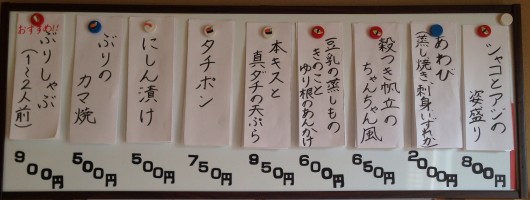 シャコとアジの
姿盛り
800円
あわび
(蒸し焼き、刺身いずれか)
2000円
殻つき帆立の
ちゃんちゃん風
650円
豆乳の蒸しもの
きのこと
ゆり根のあんかけ
600円
本キスと
真ダチの天ぷら
950円
タチポン
750円
にしん漬け
500円
ぶりの
カマ焼
500円
おすすめ!!
ぶりしゃぶ
(1〜2人前)
900円